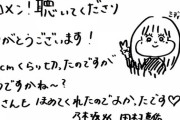 メン!聴いてくださり
がとうございます!
cmくらい切ったのですが
のですかね〜?
さんもほめてくれたのでよかったです♡
乃木坂46 田村真佑